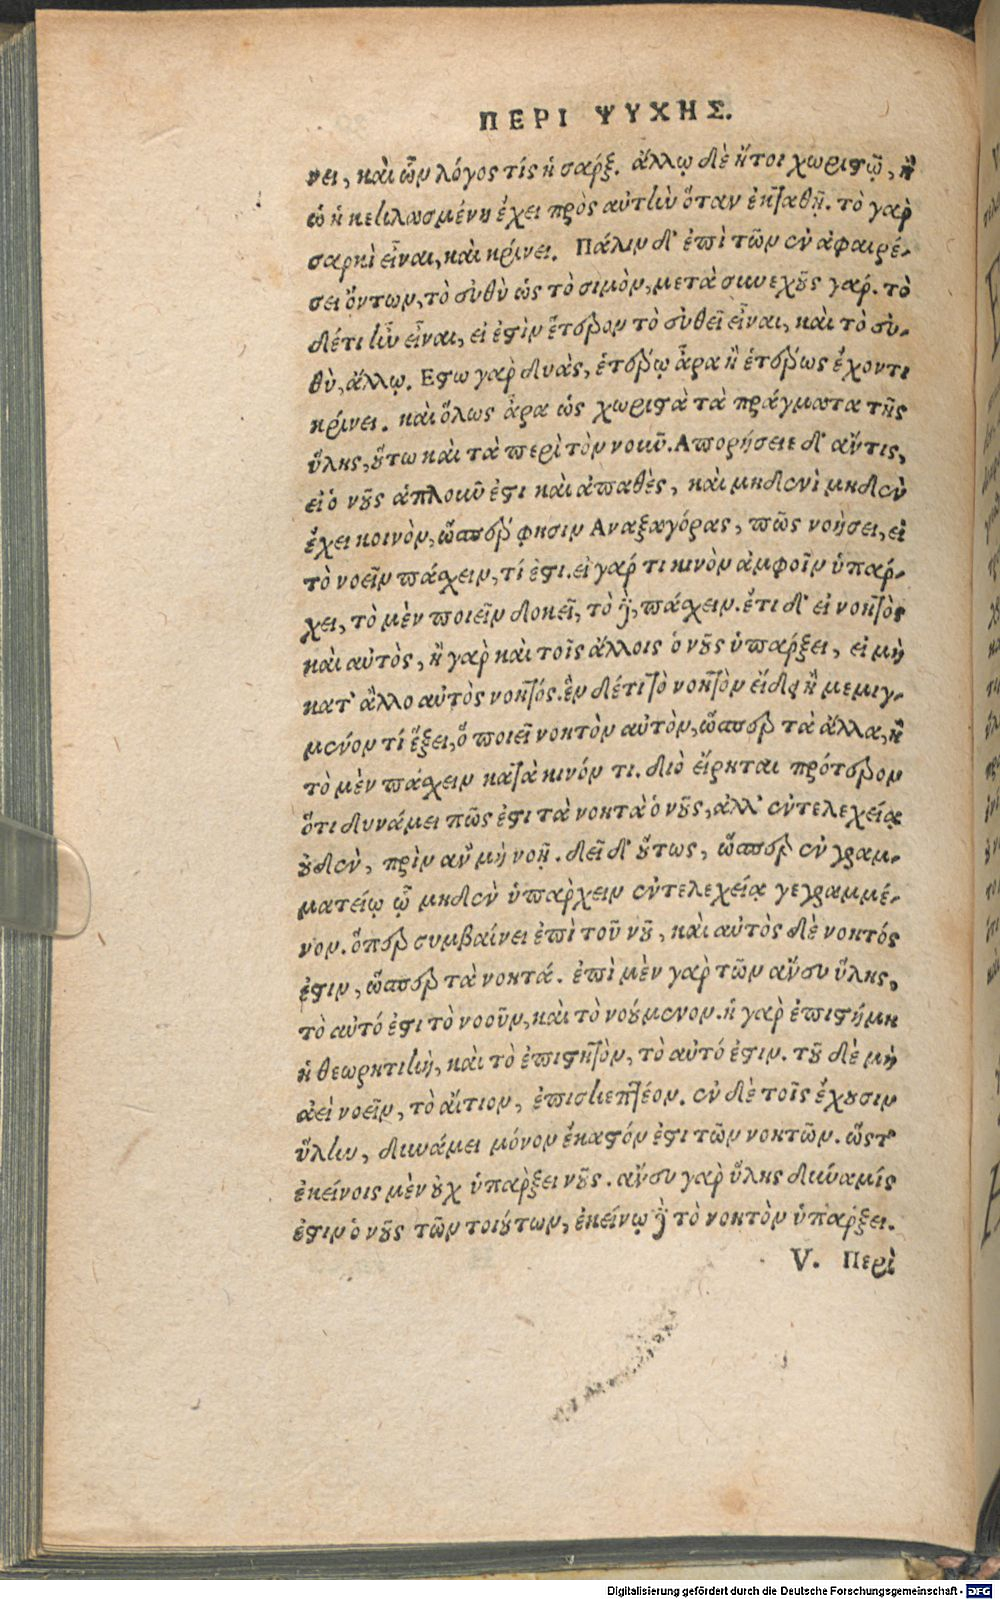 ΠΕΡΙ ΨΥΧΗΣ.
νει, καὶ ὧν λόγος τίς ἡ σαρξ. ἄλλῳ δὲ ἤτοι χωριστῷ, ἢ
ὡ ἡ κεκλασμένη ἔχει πρὸς αὑτὴν ὅταν ἐκταθῇ. τὸ γαρ
σαρκὶ εἶναι, καὶ κρίνει. Πάλιν δ' ἐπὶ τῶν ἐν ἀφαιρέ-
σει ὄντων, τὸ εὐθὺ ὡς τὸ σιμὸν, μετὰ συνεχοῦς γαρ. τὸ
δέ τι ἦν εἶναι, εἰ ἐστὶν ἕτερον τὸ εὐθεῖ εἶναι, καὶ τὸ εὐ-
θὺ, ἄλλῳ. Εστω γαρ δυὰς, ἑτέρῳ ἆρα ἢ ἑτέρως ἔχοντι
κρίνει. καὶ ὅλως ἆρα ὡς χωριστὰ τὰ πράγματα τῆς
ὕλης, οὕτω καὶ τὰ περὶ τὸν νοῦν. Απορήσειε δ' ἄν τις,
εἰ ὁ νοῦς ἁπλοῦν ἐστι καὶ ἀπαθὲς, καὶ μηδενὶ μηδὲν
ἔχει κοινὸν, ὥσπερ φησιν Αναξαγόρας, πῶς νοήσει, εἰ
τὸ νοεῖν πάσχειν, τί ἐστι. εἰ γαρ τι κινὸν ἀμφοῖν ὑπαρ-
χει, τὸ μὲν ποιεῖν δοκεῖ, τὸ δὲ, πάσχειν. ἔτι δ' εἰ νοητὸς
καὶ αὐτὸς, ἢ γαρ καὶ τοῖς ἄλλοις ὁ νοῦς ὑπαρξει, εἰ μὴ
κατ' ἄλλο αὐτὸς νοητός. ἓν δέ τι τὸ νοητὸν εἴδει ἢ μεμιγ-
μένον τί ἕξει, ὃ ποιεῖ νοητὸν αὐτὸν, ὥσπερ τὰ ἄλλα, ἢ
τὸ μὲν πάσχειν κατὰ κινόν τι. διὸ εἴρηται πρότερον
ὅτι δυνάμει πῶς ἐστι τὰ νοητὰ ὁ νοῦς, ἀλλ' ἐντελεχείᾳ
οὐδὲν, πρὶν ἂν μὴ νοῇ. δεῖ δ' οὕτως, ὥσπερ ἐν γραμ-
ματείῳ ᾧ μηδὲν ὑπαρχειν ἐντελεχείᾳ γεγραμμέ-
νον. ὅπερ συμβαίνει ἐπὶ τοῦ νοῦ, καὶ αὐτὸς δὲ νοητός
ἐστιν, ὥσπερ τὰ νοητά. ἐπὶ μὲν γαρ τῶν ἄνευ ὕλης,
τὸ αὐτό ἐστι τὸ νοοῦν, καὶ τὸ νούμενον. ἡ γαρ ἐπιστήμη
ἡ θεωρητικὴ, καὶ τὸ ἐπιστητὸν, τὸ αὐτό ἐστιν. τοῦ δὲ μὴ
ἀεὶ νοεῖν, τὸ αἴτιον, ἐπισκεπτέον. ἐν δὲ τοῖς ἔχουσιν
ὕλην, δυνάμει μόνον ἕκαστόν ἐστι τῶν νοητῶν. ὥστ'
ἐκείνοις μὲν οὐχ ὑπαρξει νοῦς. ἄνευ γαρ ὕλης δύναμίς
ἐστιν ὁ νοῦς τῶν τοιούτων, ἐκείνῳ δὲ τὸ νοητὸν ὑπαρξει.
V. Περὶ
Digitalisierung gefördert durch die Deutsche Forschungsgemeinschaft - DFG